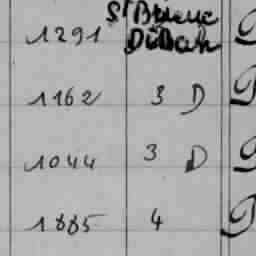 St Brieuc
1291 Dinan
1162 3 D
1044 3 D
1885 4